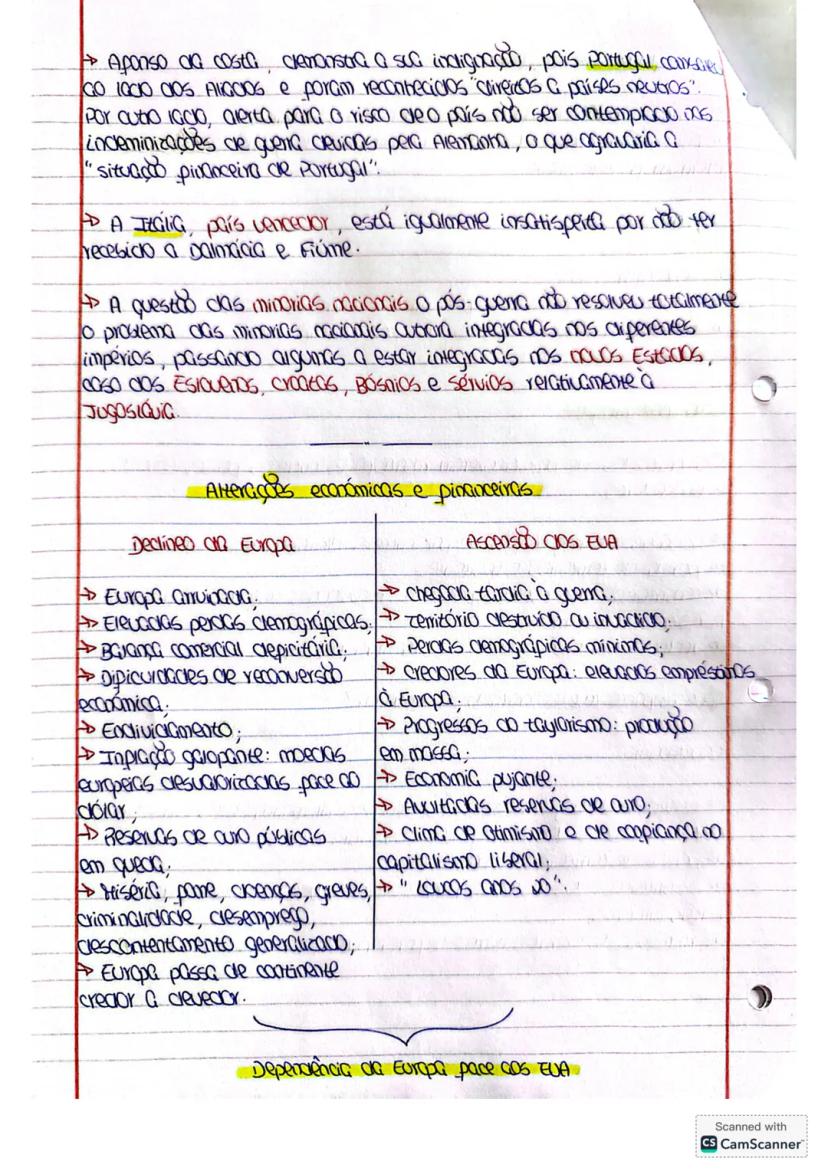 → Afonso da costa, demonstra a sua indignação, pois Portugal
ao lado dos Aliados e foram reconhecidos "direitos a países neutros".
Por outro lado, alerta para o risco de o país não ser contemplado nas
indeminizações de guerra devidas pela Alemanha, o que agravaria a
"situação financeira de Portugal".
→ A Itália, país vencedor, está igualmente insatisfeita por não ter
recebido a Dalmácia e Fiúme.
→ A questão das minorias nacionais o pós-guerra não resolveu totalmente
o problema das minorias nacionais outrora integradas nos diferentes
impérios, passando algumas a estar integradas nos novos Estados,
caso dos Eslovenos, Croatas, Bósnios e Sérvios relativamente à
Jugoslávia.
Alterações económicas e financeiras
Declíneo da Europa
→ Europa arruinada;
→ Elevadas perdas demográficas;
→ Balança comercial deficitária;
→ Dificuldades de reconversão
económica;
→ Endividamento;
→ Inflação galopante: moedas
europeias desvalorizadas face ao
dólar;
→ Reservas de ouro públicas
em queda;
→ Miséria, fome, doenças, greves,
criminalidade, desemprego,
descontentamento generalizado;
→ Europa passa de continente
credor a devedor.
Ascensão dos EUA
→ chegada tardia à guerra;
→ território destruído ou invadido;
→ Perdas demográficas mínimas;
→ credores da Europa: elevados empréstimos
à Europa;
→ Progressos do taylorismo: produção
em massa;
→ Economia pujante;
→ Avultadas reservas de ouro;
→ clima de otimismo e de confiança no
capitalismo liberal;
→ "Loucos anos 20".
Dependência da Europa face aos EUA
Scanned with
CS CamScanner